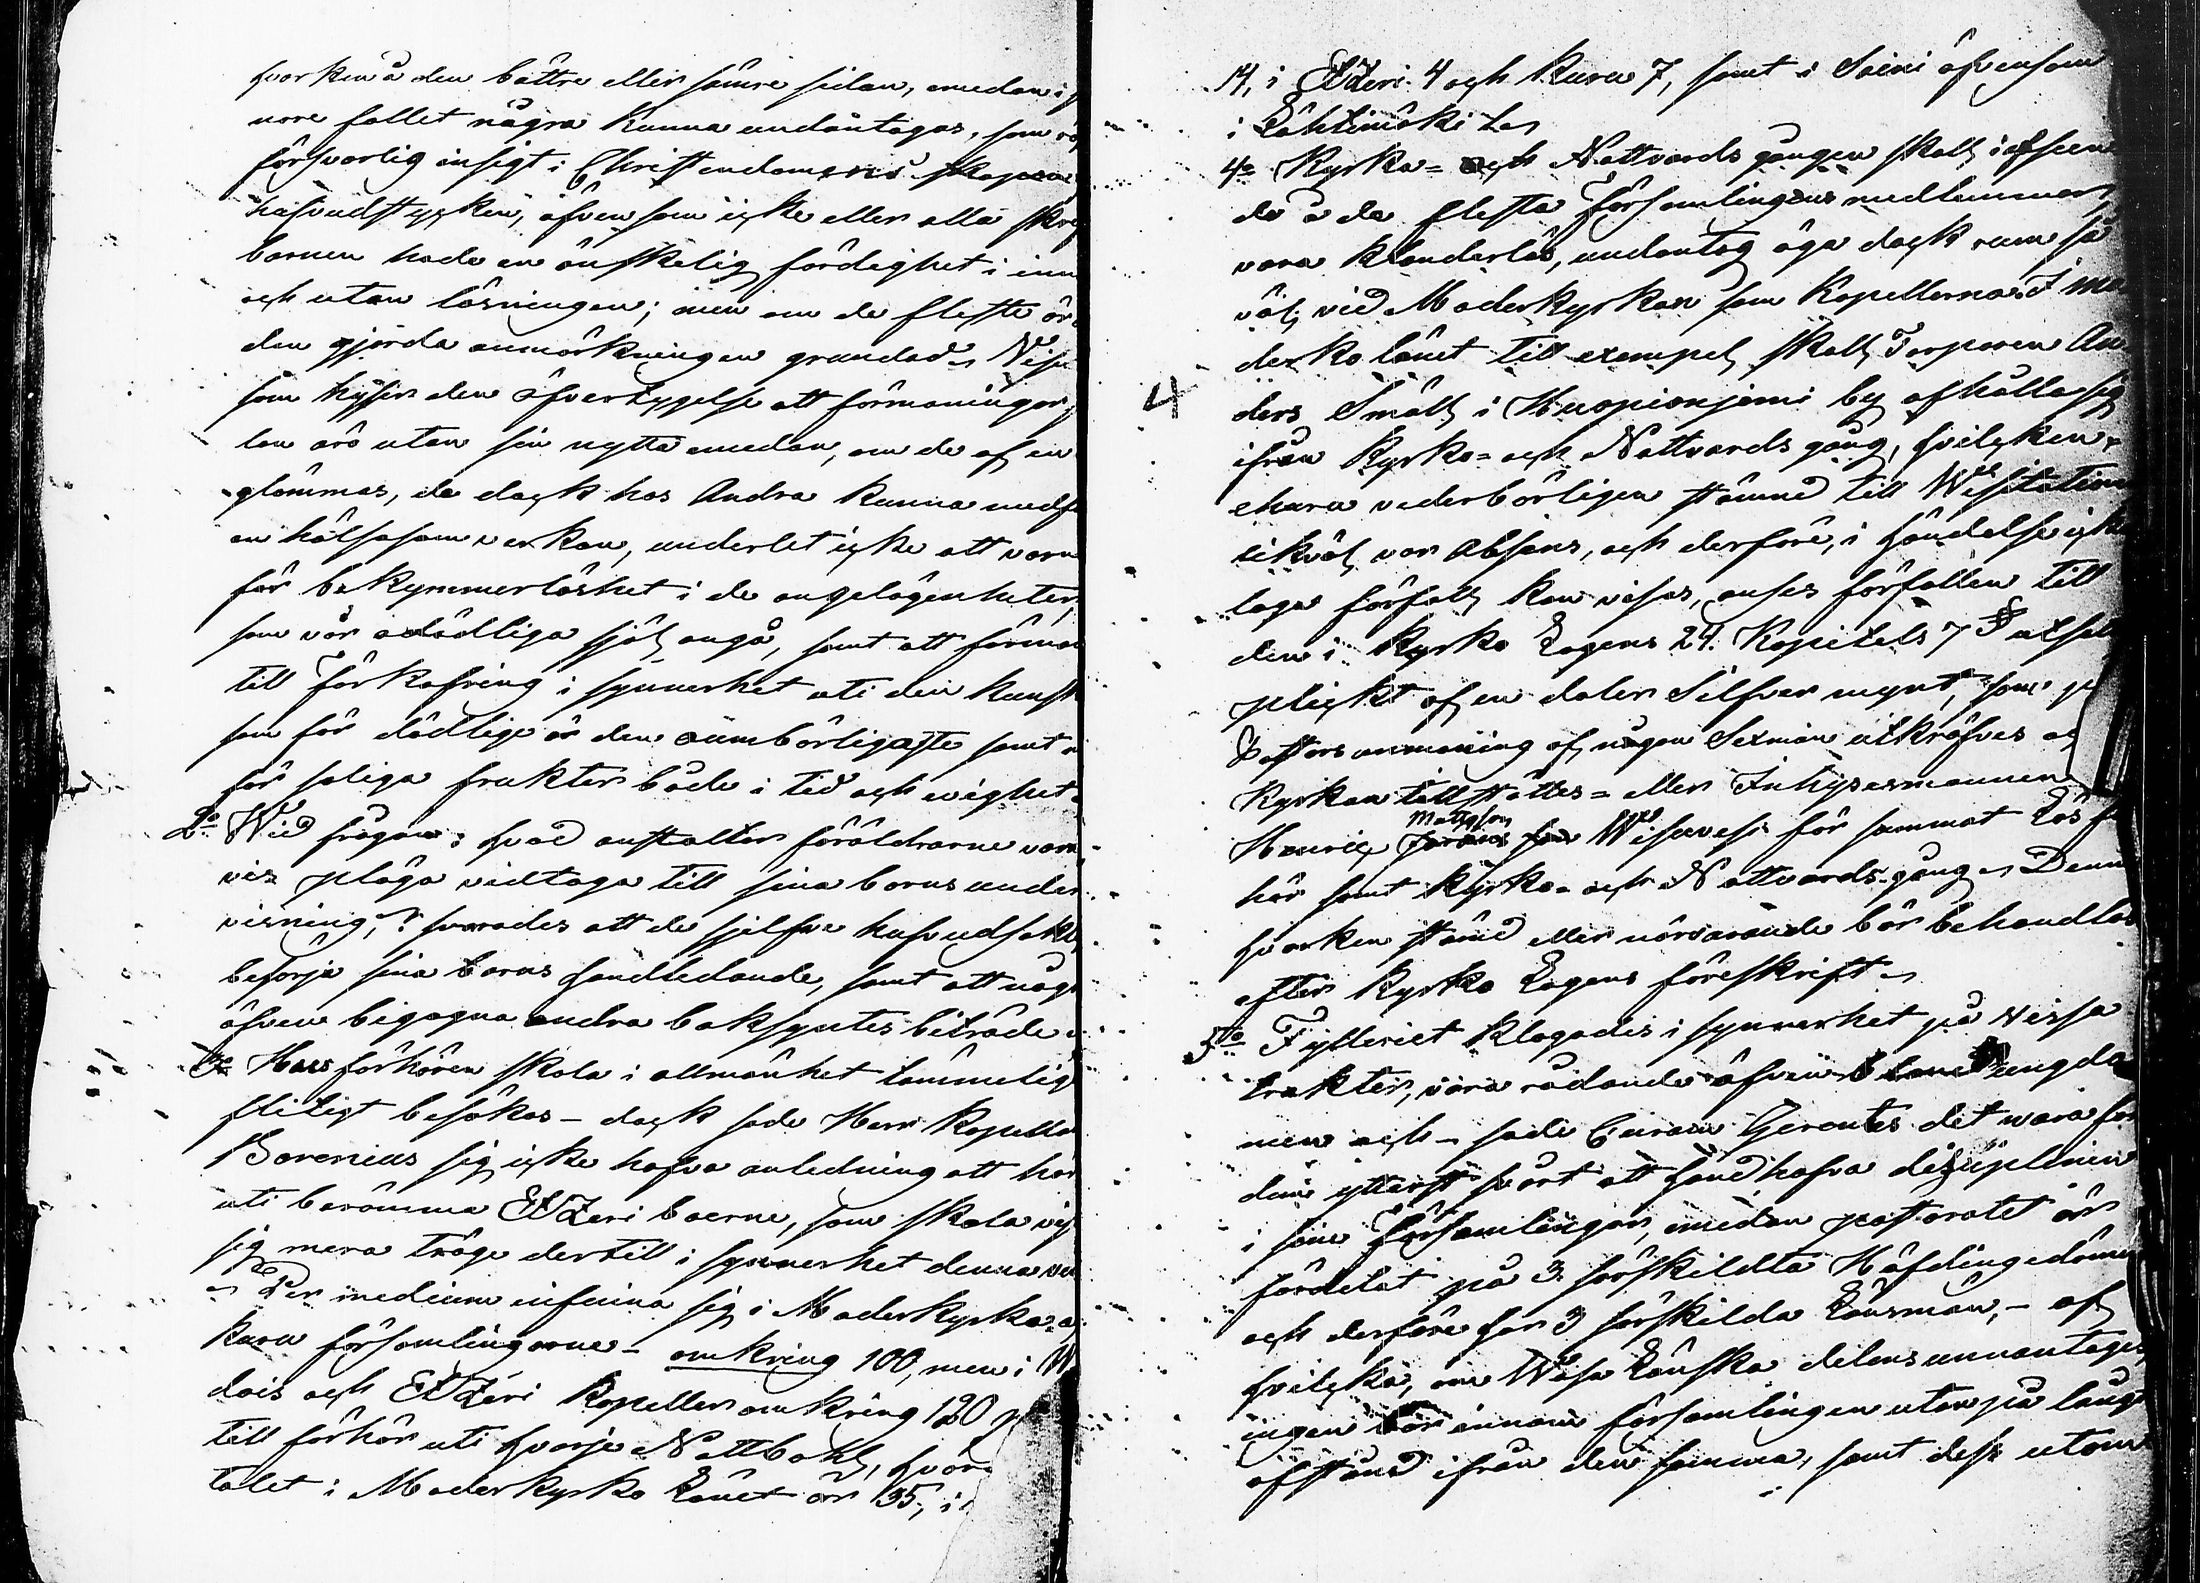 hvarken å den bättre eller sämre sidan, medan i
nore fallet några kunna undantagas, som
försvarlig insigt i Christendomens
hufvudstycken, äfvensom icke eller alla
barnen hade en önskelig färdighet i inn
och utan läsningen; men om de fleste är
den gjorda anmärkningen grundad.
som hyser den öfvertygelse att förmaningar
äro utan sin nytta emedan, om de af en
glömmas, de dock hos Andra kunna medf
en hälsosam verkan, underlät icke att varn
för bekymmerlöshet i de angelägenheter,
som vår odödliga själ angå, samt att förma
till förkofring i synnerhet uti den kunsk
som för dödlige är den oumbärligaste samt
för saliga frukter både i tid och evighet.
2o Wid frågan: hvad anstalter föräldrarne van
vis pläga vidtaga till sina barns under
visning? svarades att de sjelfve hufvudsakl
besörja sina barns handledande, samt att någ
äfven begagna andra boksyntes biträde
Husförhören skola i allmänhet tämmelig
flitigt besökas – dock sade Herr Kapella
Borenius sig icke hafva anledning att här
uti berömma Etzeri boerne, som skola
sig mera tröge dertill i synnerhet denna
Per medium infinna sig i Moderkyrko
Kuru församlingarne – omkring 100, men i
dois och Etzeri Kapeller omkring 120
till förhör uti hvarje Nattbohl,
talet i Moderkyrko Länet är 35, i
14, i Etzeri 4 och Kuru 7, samt i äfvensom
i
4o Kyrko- och Nattvards gången skall i afseen
de å de flesta församlingens medlemmar
vara klanderlös, undantag äga dock rum så
väl vid Moderkyrkan som Kapellerna. I Mo
derko länet till exempel skall Torparen An
4
ders Småll i Kuopionjemi by afhålla sig
ifrån Kyrko- och Nattvards gång, hvilcken
ehuru vederbörligen stämd till Wisitation
likväl var absens, och derföre, i händelse icke
laga förfall kan visas, anses förfallen till
den i Kyrko Lagens 24. Kapitels 7 § utsat
plickt af en daler Silfver mynt, som
anmaning af någon Sexman utkräfves
Kyrkan tillstältes – eller Inhysesmannen
Mattsson
Henric Wisuvesi för sammat
hör samt Kyrko- och Nattvards-gång. Denn
hvarken stämd eller närvarande bör behandlas
efter Kyrko Lagens föreskrift.
5to Fylleriet klagades i synnerhet på vissa
trakter, vara rådande äfven bland ungdo
men och – sade Curam Gerentes det vara för
den ytterst svårt att handhafva disciplinen
i sine församlingar, medan pastoratet är
fördelat på 3 särskildta Höfdingedömen
och derföre har 3 särskilda Länsmän, – af
hvilcka, om Wasa Länska delens unnantages,
ingen bor innom församlingen utan på långt
afstånd ifrån den samma, samt dess utom